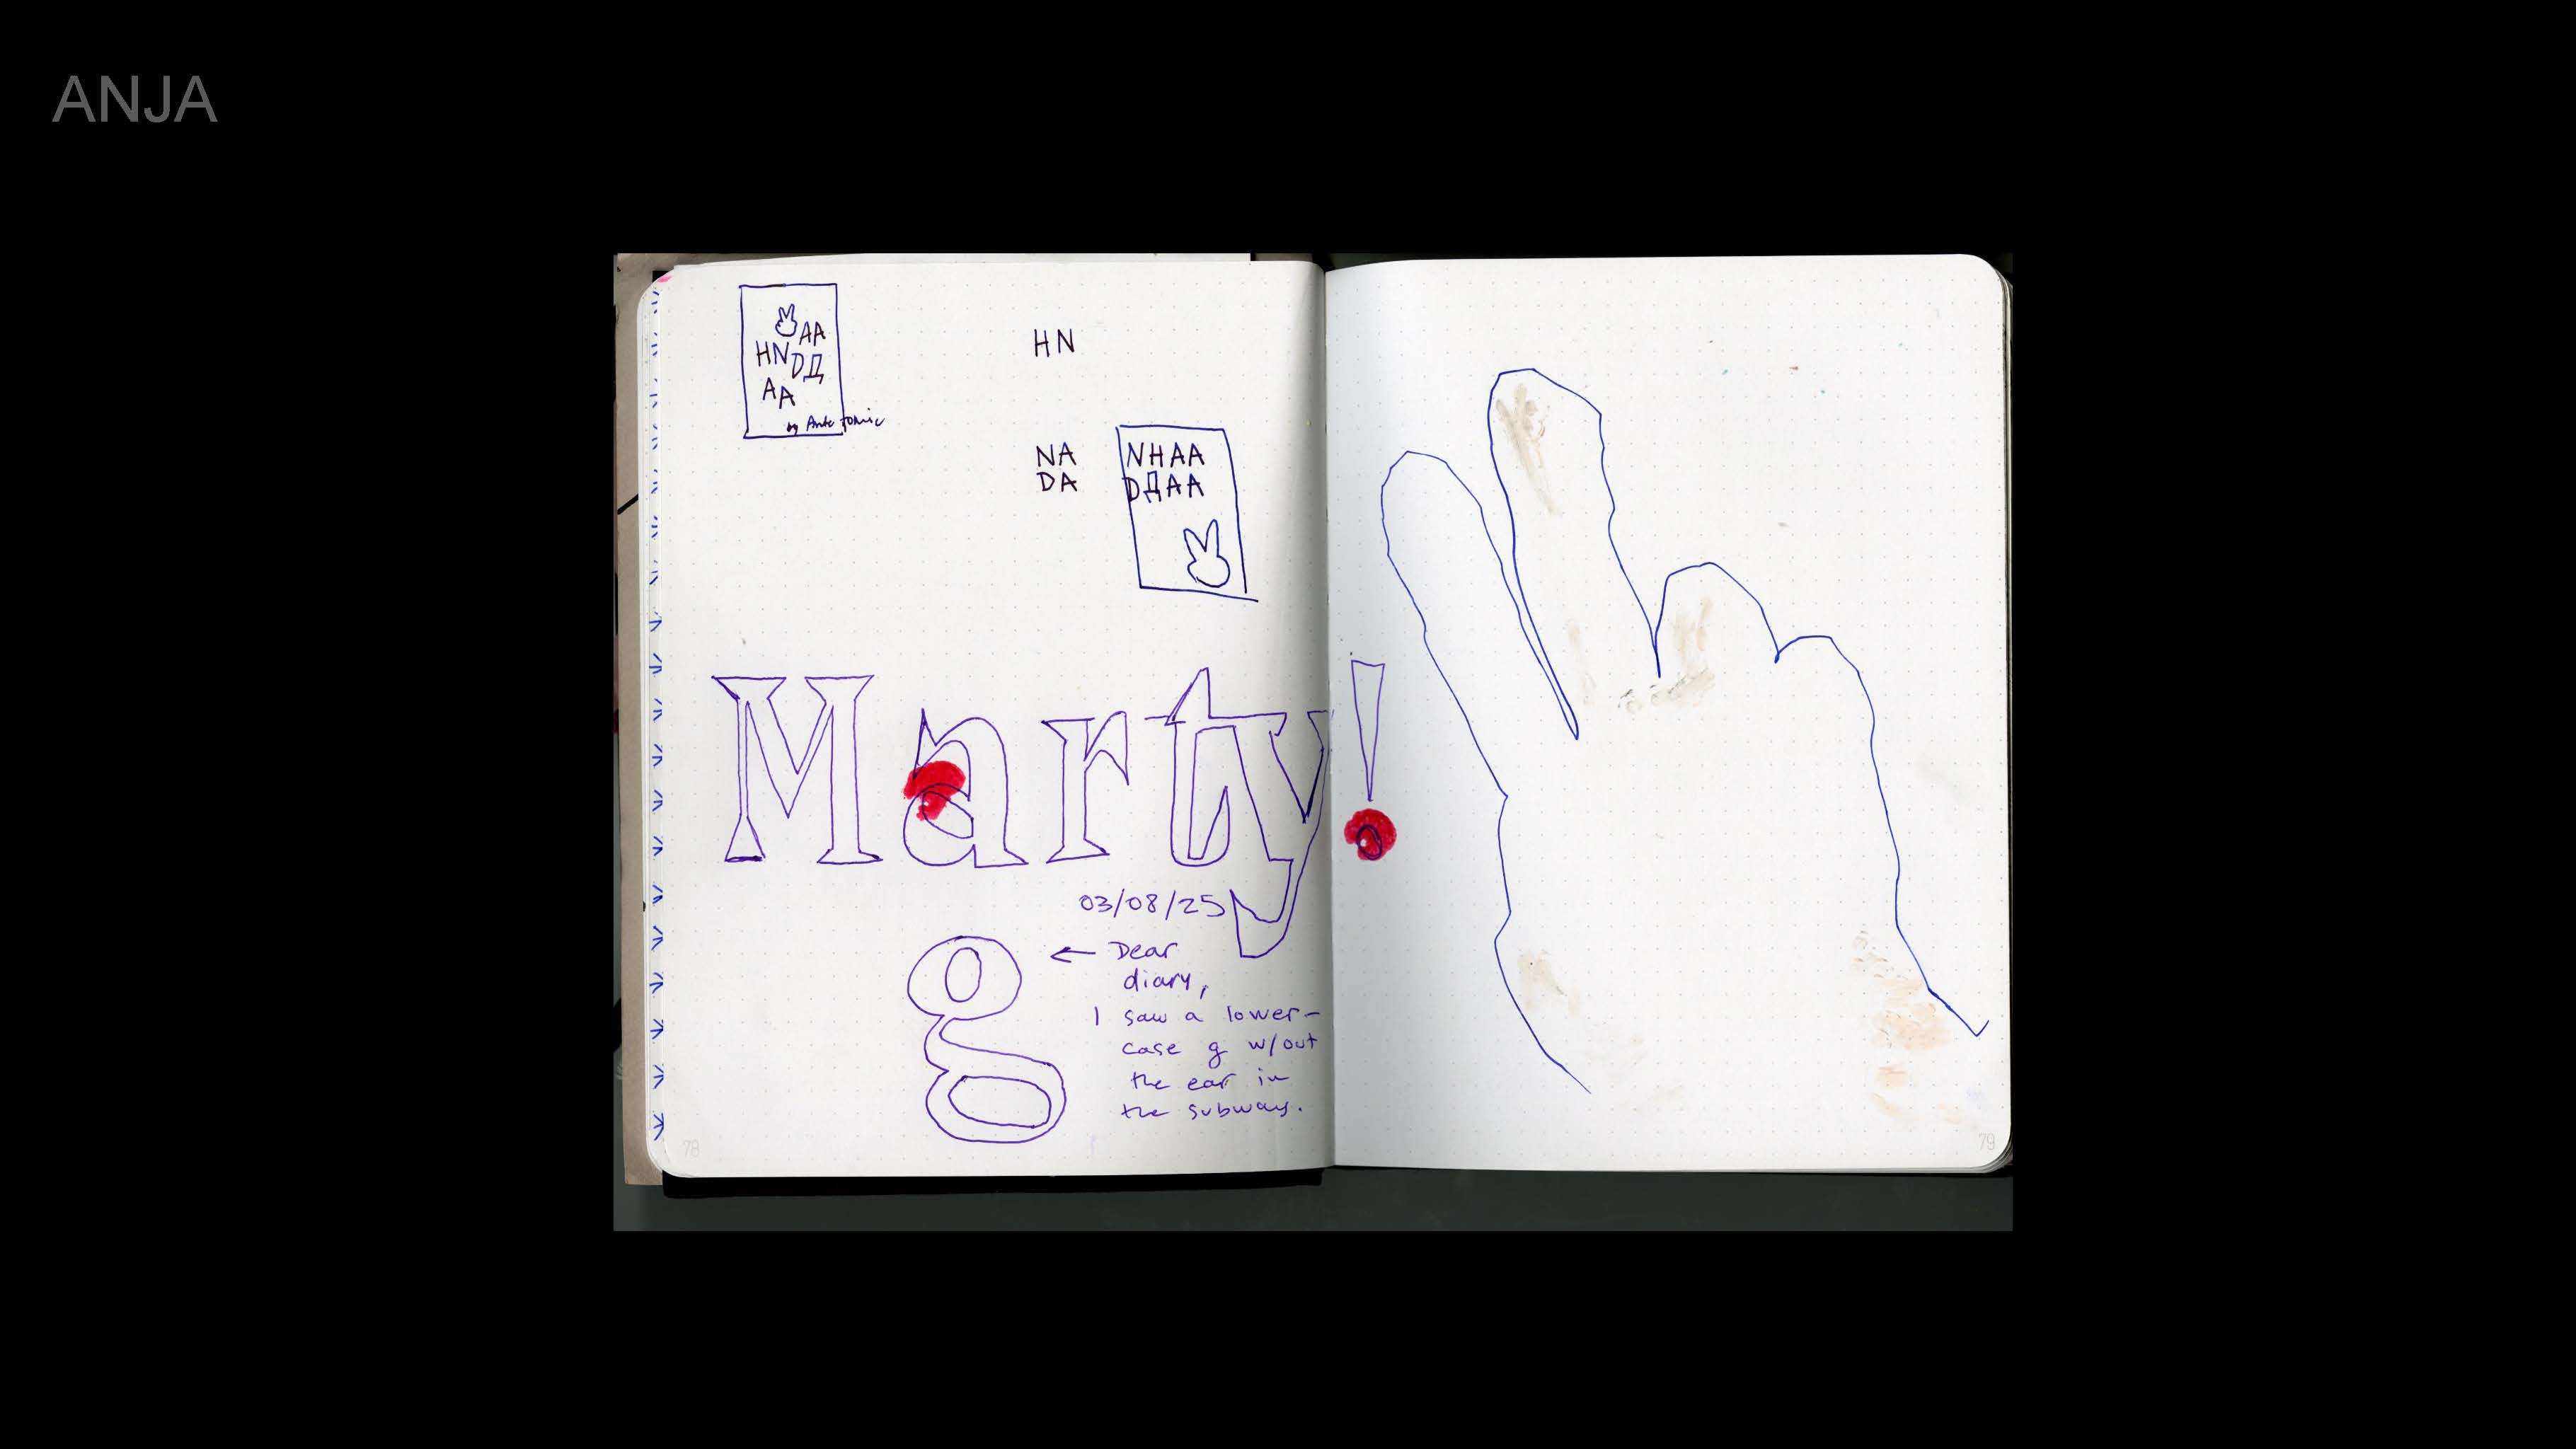 ANJA
AA
HN DД
AA
by Ante Tomic
HN
NA
DA
NHAA
DДAA
Marty!
03/08/25
g ← Dear
diary,
I saw a lower-
case g w/out
the ear in
the subway.
78
79